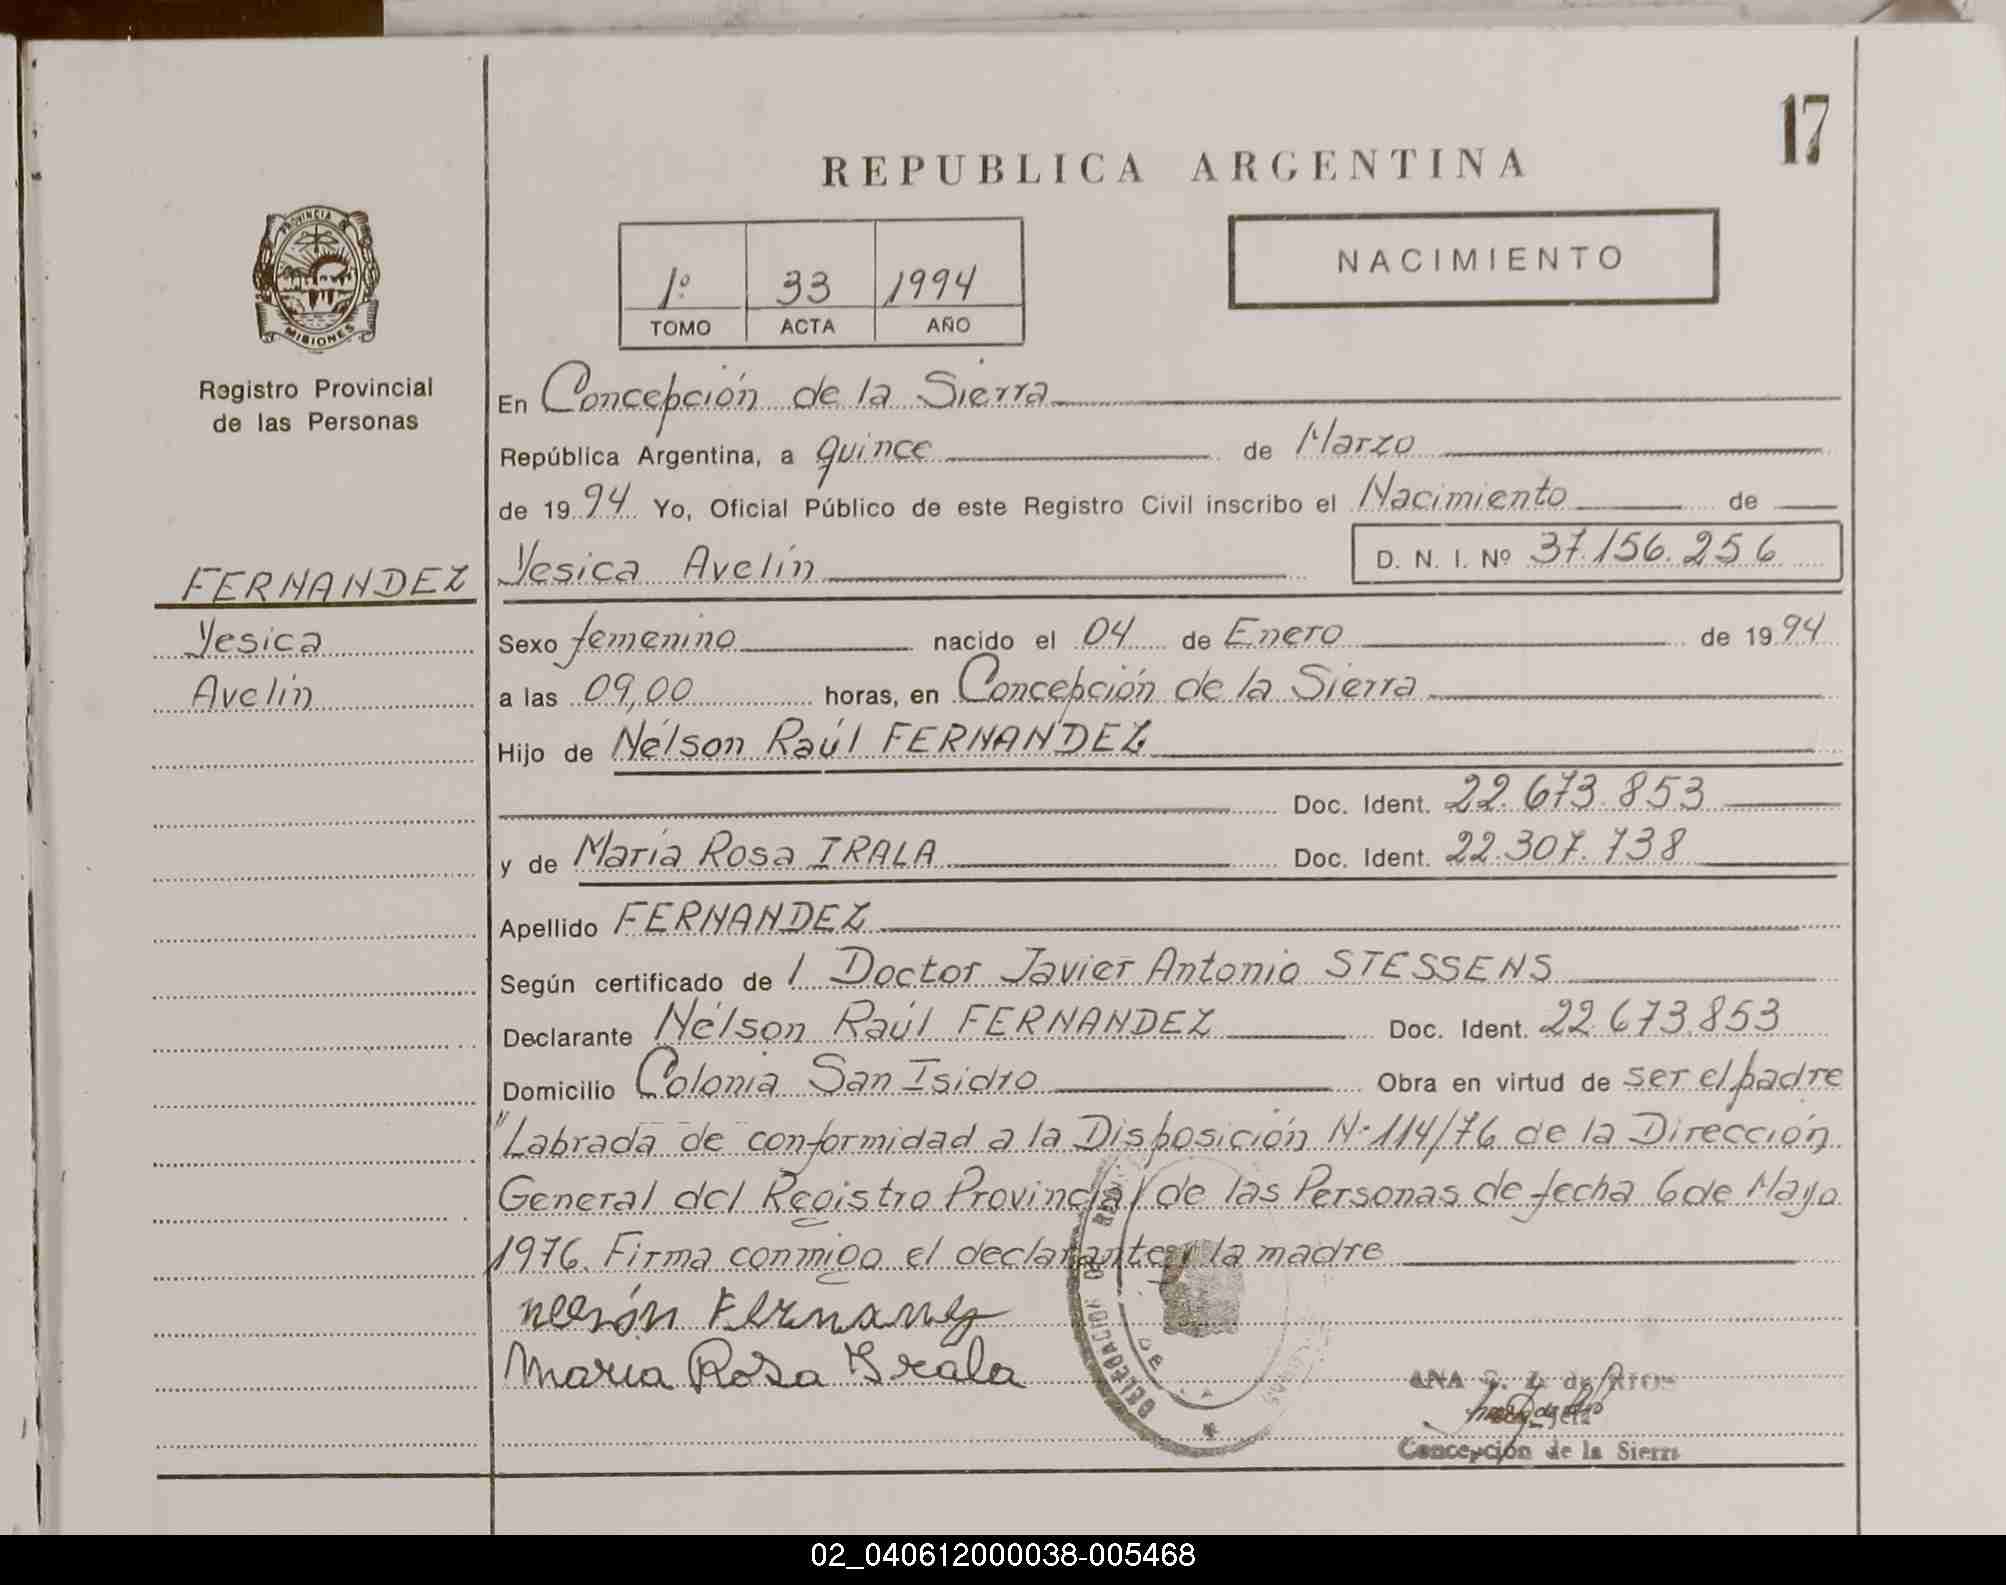 17
REPUBLICA ARGENTINA
PROVINCIA DE
MISIONES
Registro Provincial
de las Personas
1º 33 1994
TOMO ACTA AÑO
NACIMIENTO
En Concepción de la Sierra
República Argentina, a quince de Marzo
de 1994 Yo, Oficial Público de este Registro Civil inscribo el Nacimiento de
Yesica Avelín D. N. I. Nº 37.156.256
FERNANDEZ
Yesica
Avelín
Sexo femenino nacido el 04 de Enero de 1994
a las 09,00 horas, en Concepción de la Sierra
Hijo de Nélson Raúl FERNANDEZ
Doc. Ident. 22.673.853
y de María Rosa IRALA Doc. Ident. 22.307.738
Apellido FERNANDEZ
Según certificado de l Doctor Javier Antonio STESSENS
Declarante Nélson Raúl FERNANDEZ Doc. Ident. 22.673.853
Domicilio Colonia San Isidro Obra en virtud de ser el padre
"Labrada de conformidad a la Disposición N· 114/76 de la Dirección
General del Registro Provincial de las Personas de fecha 6 de Mayo
1976. Firma conmigo el declarante y la madre
María Rosa Irala
DELEGACION DE
ANA S. Z. de RIOS
Concepción de la Sierra
02_040612000038-005468